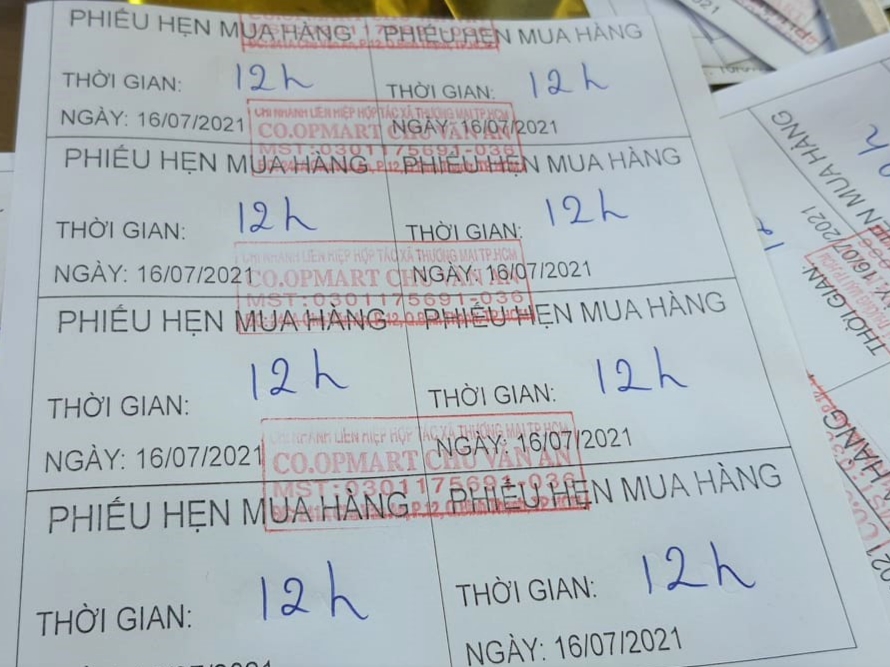 PHIẾU HẸN MUA HÀNG PHIẾU HẸN MUA HÀNG
THỜI GIAN: 12h THỜI GIAN: 12h
NGÀY: 16/07/2021 NGÀY: 16/07/2021
CHI NHÁNH LIÊN HIỆP HỢP TÁC XÃ THƯƠNG MẠI TP.HCM
CO.OPMART CHU VĂN AN
MST:0301175691-036
PHIẾU HẸN MUA HÀNG PHIẾU HẸN MUA HÀNG
THỜI GIAN: 12h THỜI GIAN: 12h
NGÀY: 16/07/2021 NGÀY: 16/07/2021
CHI NHÁNH LIÊN HIỆP HỢP TÁC XÃ THƯƠNG MẠI TP.HCM
CO.OPMART CHU VĂN AN
MST:0301175691-036
PHIẾU HẸN MUA HÀNG PHIẾU HẸN MUA HÀNG
THỜI GIAN: 12h THỜI GIAN: 12h
NGÀY: 16/07/2021 NGÀY: 16/07/2021
CHI NHÁNH LIÊN HIỆP HỢP TÁC XÃ THƯƠNG MẠI TP.HCM
CO.OPMART CHU VĂN AN
MST:0301175691-036
PHIẾU HẸN MUA HÀNG PHIẾU HẸN MUA HÀNG
THỜI GIAN: 12h THỜI GIAN: 12h
NGÀY: 16/07/2021
MUA HÀNG
16/07/2021
THỜI GIAN:
HÀNG